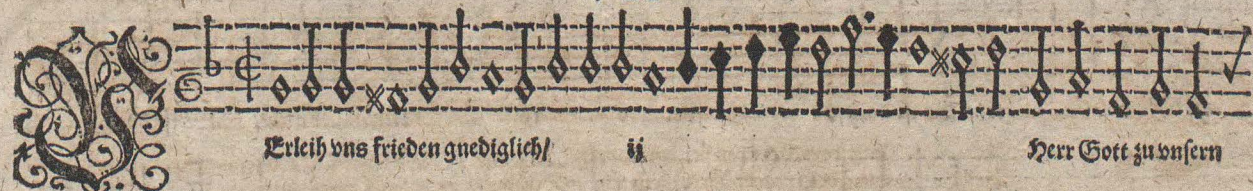 VErleih vns frieden gnediglich/ ij Herr Gott zu vnsern